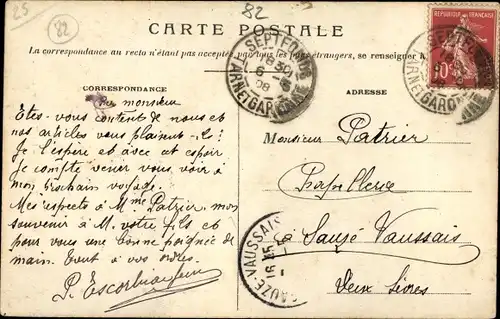 25
82
82
CARTE POSTALE
La correspondance au recto n'étant pas acceptée par tous les pays étrangers, se renseigner à
CORRESPONDANCE
ADRESSE
RÉPUBLIQUE FRANÇAISE
10c
SEPTFONDS
TARN-ET-GARONNE
SEPTFONDS
TARN-ET-GARONNE
monsieur
Etes-vous content de nous et
nos articles vous plaisent-ils?
Je l'espère et avec cet espoir
je compte venir vous voir à
mon prochain voyage.
Mes respects à Mme Patrier, mon
souvenir à M. votre fils et
pour vous une bonne poignée de
main. Tout à vos ordres.
P.
Monsieur Patrier
Chapellerie
à Sauzé Vaussais
Deux Sèvres
SAUZE-VAUSSAIS